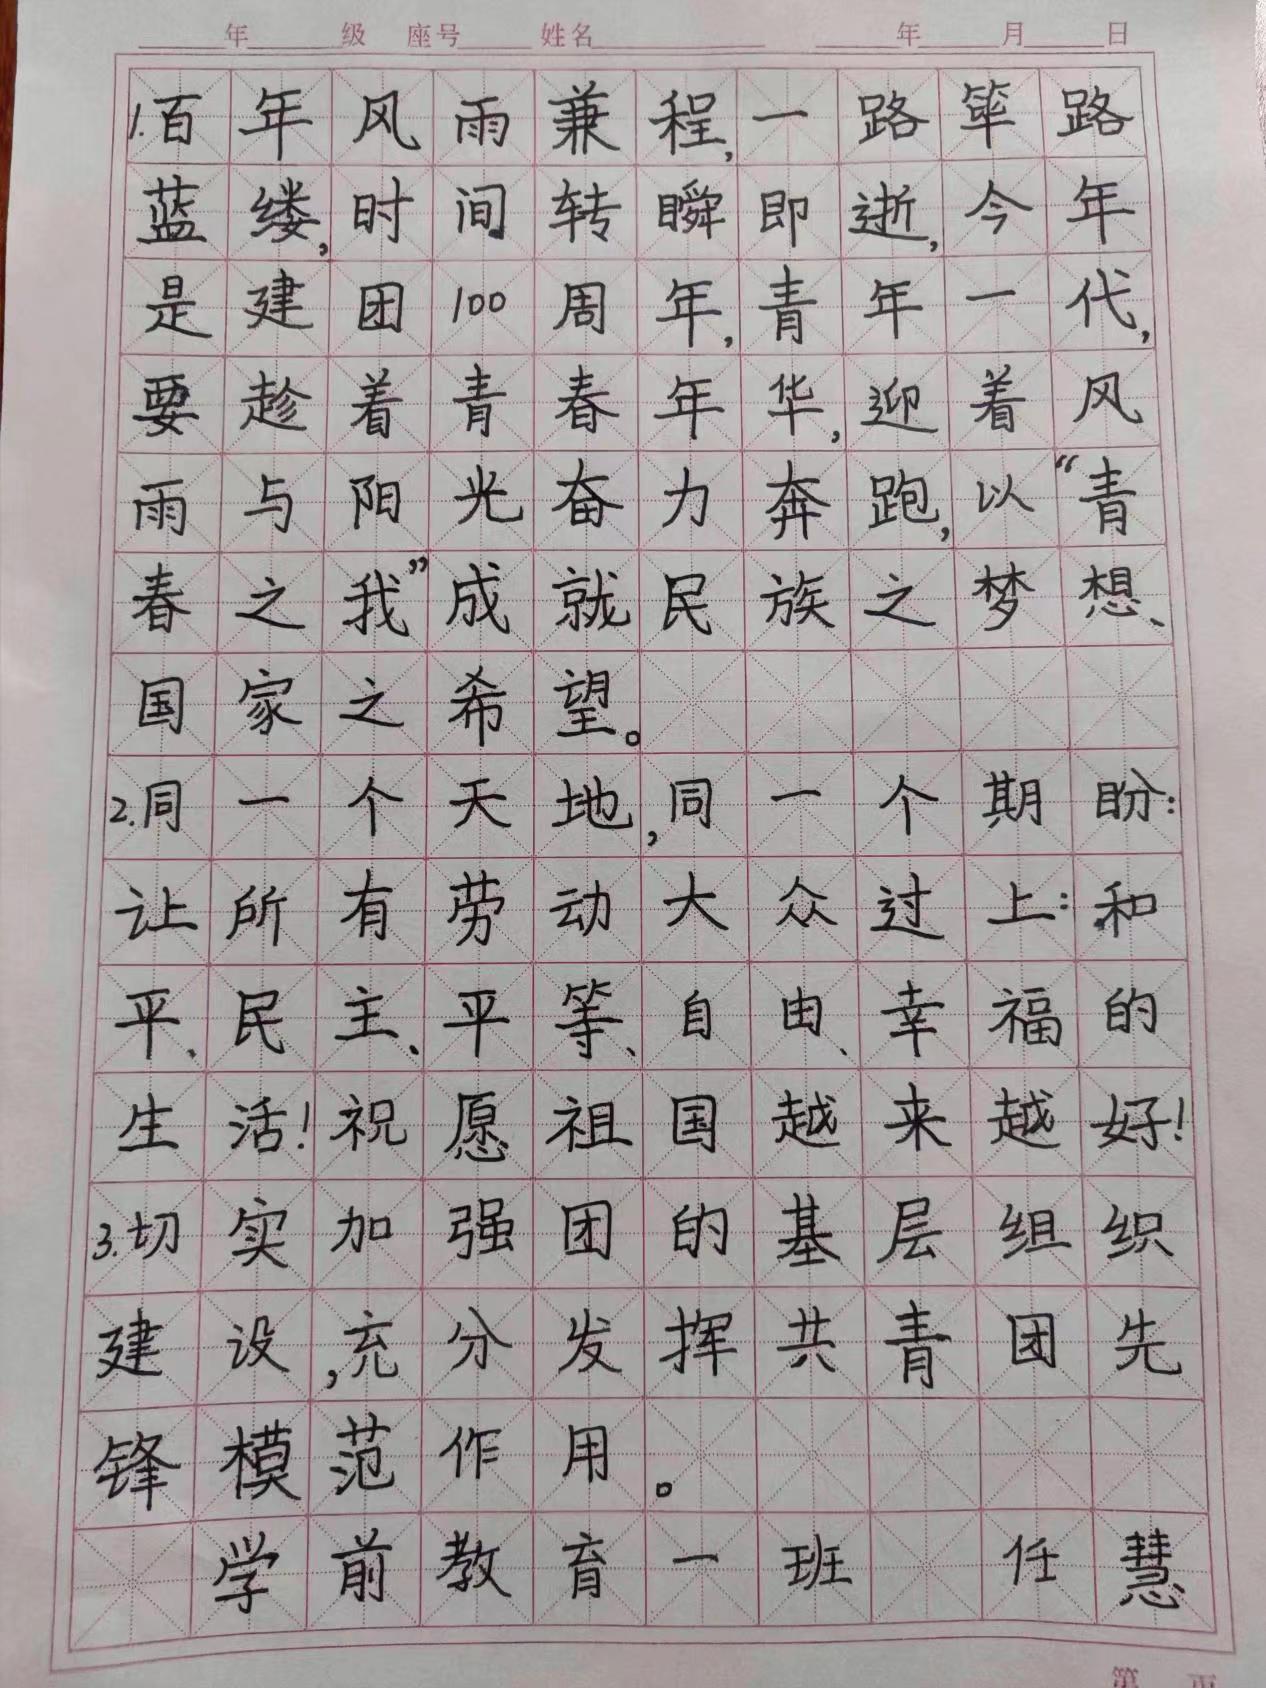 年 级 座号 姓名 年 月 日
1.百年风雨兼程,一路筚路
蓝缕,时间转瞬即逝,今年
是建团100周年,青年一代,
要趁着青春年华,迎着风
雨与阳光奋力奔跑,以“青
春之我”成就民族之梦想、
国家之希望。
2.同一个天地,同一个期盼:
让所有劳动大众过上:和
平、民主、平等、自由、幸福的
生活!祝愿祖国越来越好!
3.切实加强团的基层组织
建设,充分发挥共青团先
锋模范作用。
学前教育一班 任慧
第 页